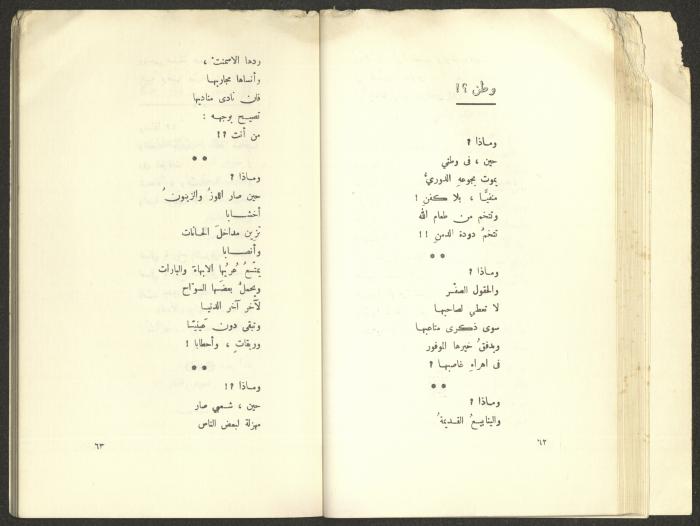 وطن ؟!
وماذا ؟
حين ، في وطني
يموت بجوعهِ الدوريُّ
منفيًّا ، بلا كفنِ !
وتتخم من طعام الله
تتخمُ دودة الدمنِ !!
وماذا ؟
والحقول الصفْر
لا تعطي لصاحبها
سوى ذكرى متاعبها
ويدفقُ خيرها الموفور
في اهراءِ غاصبها ؟
وماذا ؟
والينابيعُ القديمةُ
٦٢
ردها الاسمنت ،
وأنساها مجاريها
فان نادى مناديها
تصيح بوجهه :
من أنت ؟!
وماذا ؟
حين صار اللوزُ والزيتونُ
أخشابا
تزين مداخلَ الحانات
وأنصابا
يمتّعُ عُريُها الابهاءَ والبارات
ويحملُ بعضَها السوّاح
لآخر آخر الدنيا
وتبقى دون عَينيّا
وريقاتٍ ، وأحطابا !
وماذا ؟!
حين ، شعبي صار
مهزلة لبعض الناس
٦٣